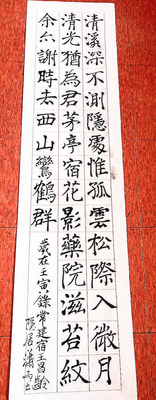 清溪深不測隱處惟孤雲松際入微月
清光猶為君茅亭宿花影藥院滋苔紋
余亦謝時去西山鸞鶴群
歲在壬寅錄常建宿王昌齡
隱居瀟雨